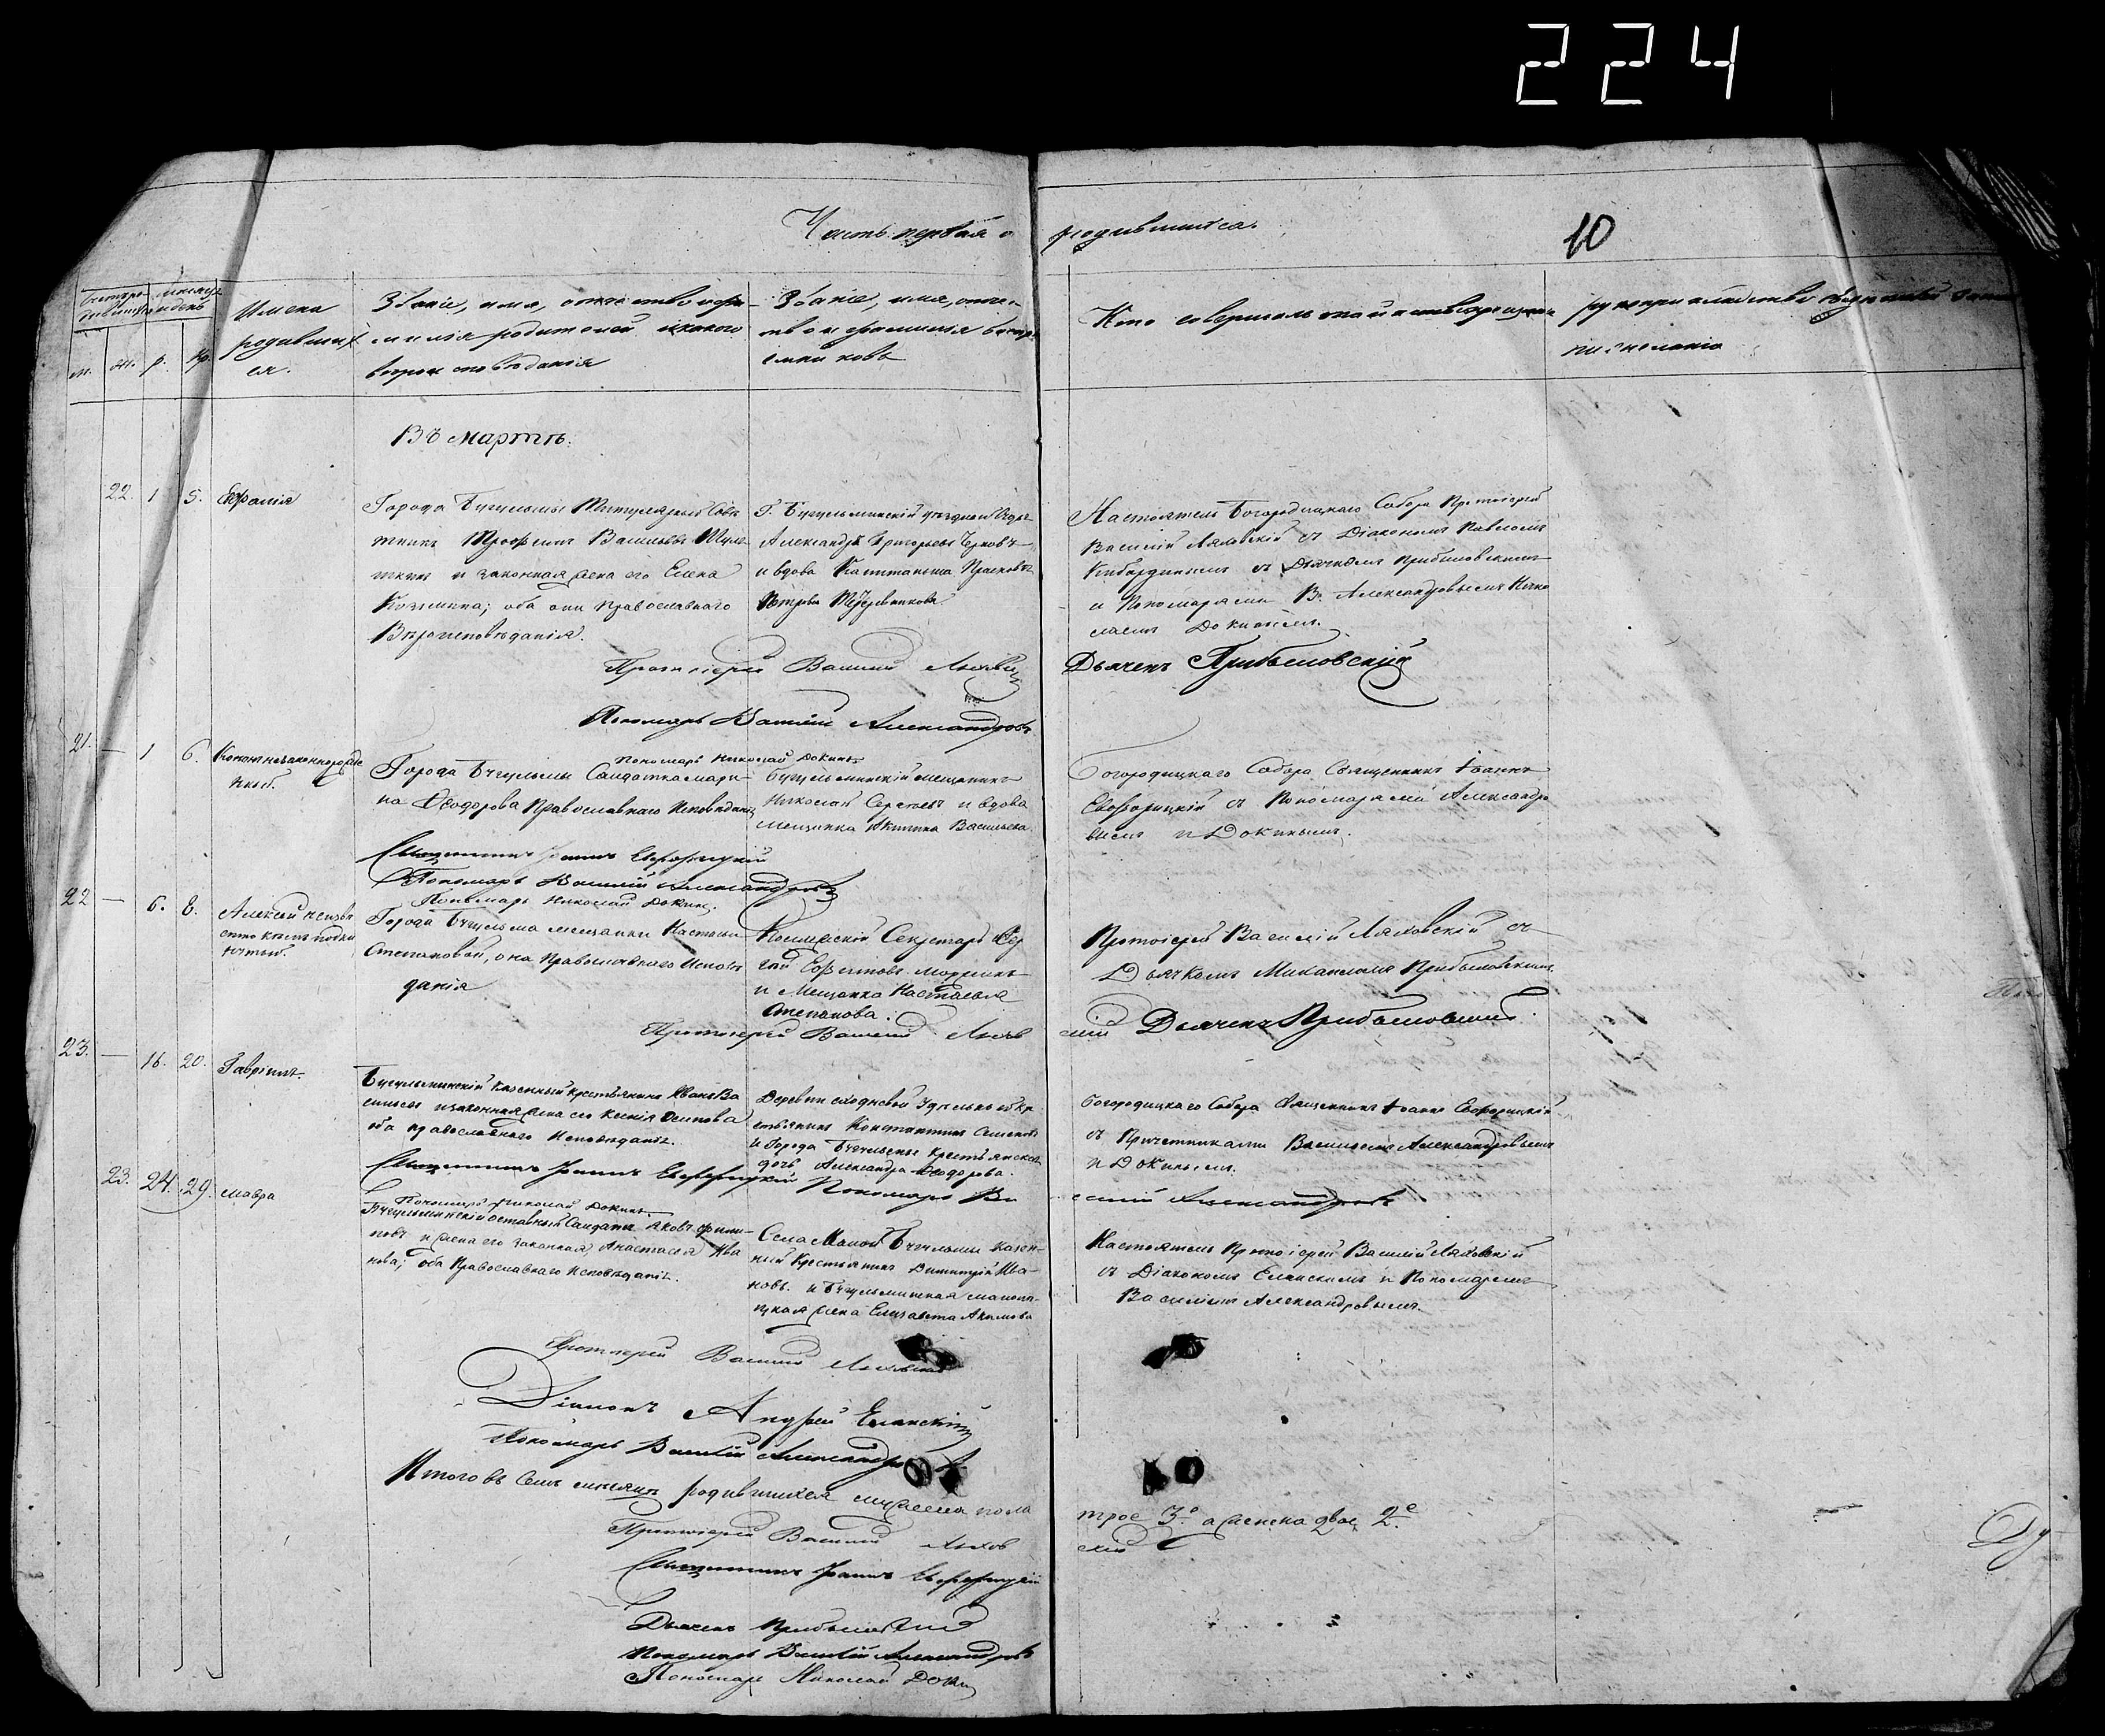 224
Часть первая о родившихся.
10
Имена родивших ся.
Званіе, имя, отчество и фа-
милія родителей и какого
вероисповеданія
Званіе, имя, отче-
тво и фамилія воспрі-
емниковъ
Кто совершалъ таинство крещенія
рукоприкладство
м. ж. р. кр.
Въ мартѣ.
22. 1 5.
Города Бугульмы Титулярный Совѣ
тникъ Трофимъ Васильевъ
и законная жена его Елена
Козмина; оба они Православнаго
Вѣроисповѣданія.
Г. Бугульминскій уѣздной
Александръ Григорьевъ
и вдова Капитанша Прасковья
Петрова
Настоятель Богородицкаго Собора Протоіерей
Василій Ляховскій съ Діакономъ Павломъ
съ Дьячкомъ Прибыловскимъ
и Пономарями В. Александровымъ Нико
лаемъ Докинымъ.
Протоіерей Василій
Дьячекъ Прибыловскій
Пономарь Василій Александровъ
Пономарь Николай Докинъ
21. — 1 6. Кононъ незаконнорожде
нный.
Города Бугульмы Солдатка Мари-
на Ѳеодорова Православнаго Исповѣданія
Бугульминскій мещанинъ
Николай Сергеевъ и вдова
Мещанка Акилина Васильева
Богородицкаго Собора Священникъ Іоаннъ
Евфорицкій съ Пономарями Александро
вымъ и Докинымъ.
Священникъ Іоаннъ Евфорицкій
Пономарь Василій Александровъ
Пономарь Николай Докинъ.
22 — 6. 8. Алексей неизвѣ
стно кѣмъ подки
нутый.
Города Бугульма мещанки Настасьи
Степановой, она Православнаго Исповѣ
данія
Секретарь Сер
гей
и Мещанка Настасья
Степанова.
Протоіерей Василій Ляховскій съ
Дьячкомъ Михаиломъ Прибыловскимъ
Протоіерей Василій Ляхов
скій Дьячекъ Прибыловскій
23. — 16. 20. Гавріилъ.
Бугульминскій Казенный крестьянинъ Иванъ Ва
сильевъ и законная жена его Ксенія Осипова
оба православнаго Исповѣданія.
Деревни Удѣльной кр
естьянинъ Константинъ Семеновъ
и города Бугульмы крестьянская
дочь Александра Ѳеодорова.
Богородицкаго Собора Священникъ Іоаннъ Евфорицкій
съ Причетниками Василіемъ Александровымъ
и Докинымъ.
Священникъ Іоаннъ Евфорицкій Пономарь Ва
силій Александровъ
Пономарь Николай Докинъ.
23. 24. 29. Мавра
Бугульминскій отставный Солдатъ Яковъ Филип-
повъ и жена его законная Анастасія Ива
нова; оба Православнаго Исповѣданія.
Села Малой Бугульмы казен-
ный Крестьянинъ Димитрій Ива-
новъ. и Бугульминская
жена Елизавета Акимова
Настоятель Протоіерей Василій Ляховскій
съ Діакономъ Еланскимъ и Пономаремъ
Василіемъ Александровымъ.
Протоіерей Василій Ляховскій
Діаконъ Андрей Еланскій
Пономарь Василій Александровъ
Итого въ семъ месяцѣ родившихся мужеска пола
трое 3.е а женска двое 2.е
Протоіерей Василій Ляхов
скій
Священникъ Іоаннъ Евфорицкій
Дьячекъ Прибыловскій
Пономарь Василій Александровъ
Пономарь Николай Докинъ
Ду